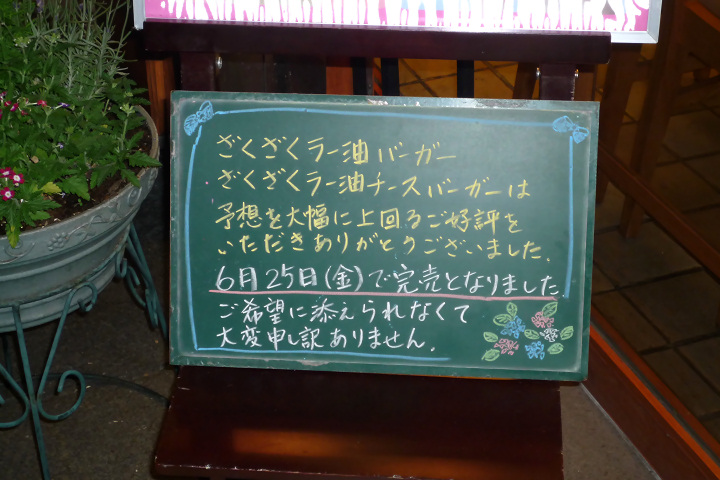 ざくざくラー油バーガー
ざくざくラー油チーズバーガーは
予想を大幅に上回るご好評を
いただきありがとうございました.
6月25日(金)で完売となりました.
ご希望に添えられなくて
大変申し訳ありません.